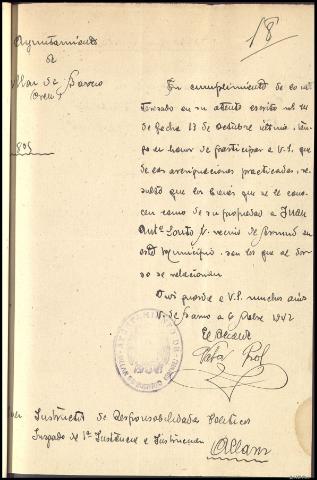 18
Ayuntamiento
de
Villar de Barrio
(Orense)
En cumplimiento de lo inte-
resado en su atento escrito
de fecha 13 de Octubre último, ten-
go el honor de participar a V.S. que
de las averiguaciones practicadas, re-
sulta que los bienes que se le cono-
cen como de su propiedad a Juan
Antº Souto vecino de
este Municipio, son los que al dor-
so se relacionan
Dios guarde a V.S. muchos años
V. de Barrio a 6 1942
El Alcalde
Instructor de Responsabilidades Politicas
Juzgado de 1ª Instancia e Instrucción
Allariz